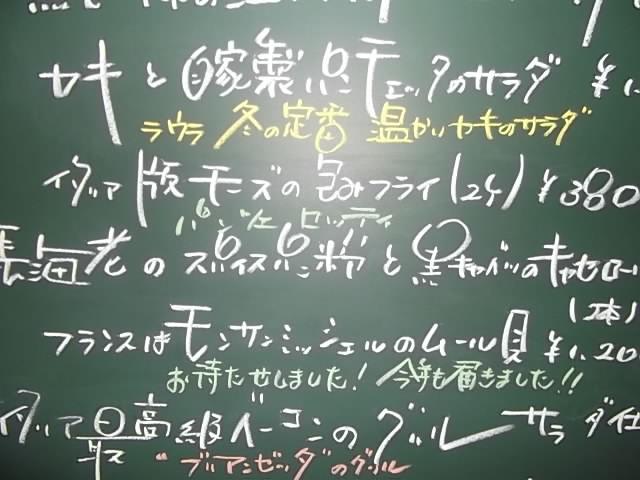 カキと自家製パンチェッタのサラダ ¥1.
ラウラ 冬の定番 温かいカキのサラダ
イタリア版チーズの包みフライ(2ケ) ¥380
パンツェロッティ
海老のスパイスパン粉と黒キャベツのキャセロー
(2本)
フランスはモンサンミッシェルのムール貝 ¥1.20
お待たせしました! 今年も届きました!!
イタリア最高級ベーコンのグリル サラダ仕
"ブリアンゼッタ"のグリル